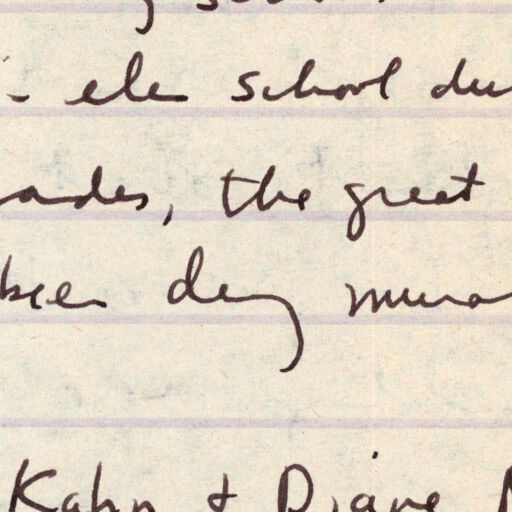 ele school du
ades, the great
been doing mura
Kahn + Diane